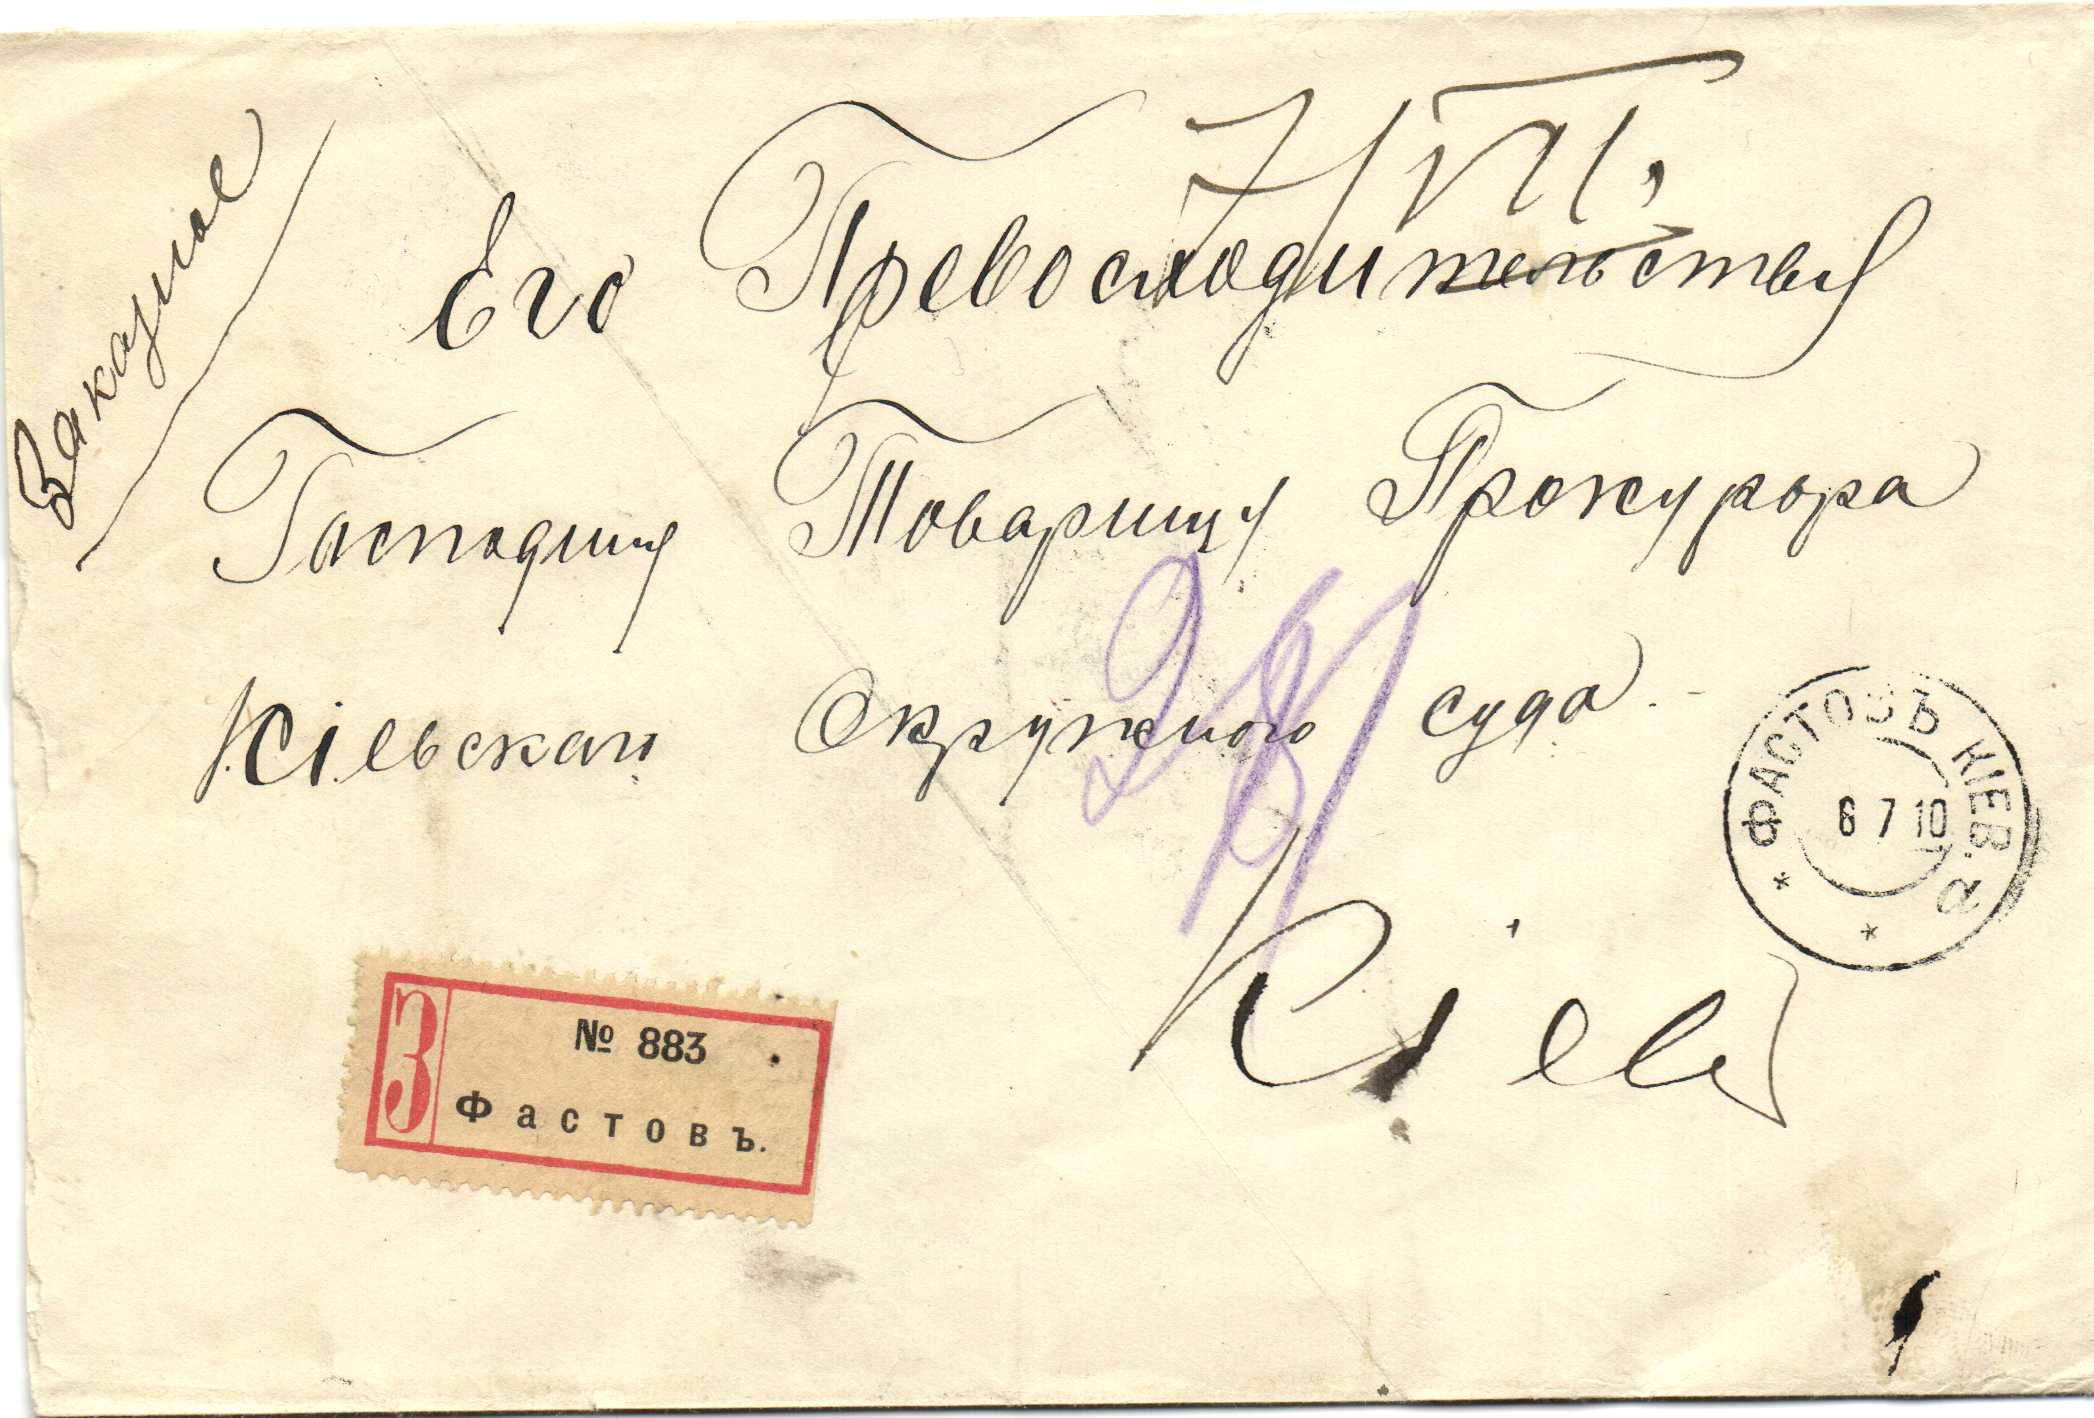 Заказное
7/VII.
Его Превосходительству
Господину Товарищу Прокурора
Кіевскаго Окружного суда
ФАСТОВЪ КІЕВ. а
6 7 10
Кіев
З
№ 883
Фастовъ.